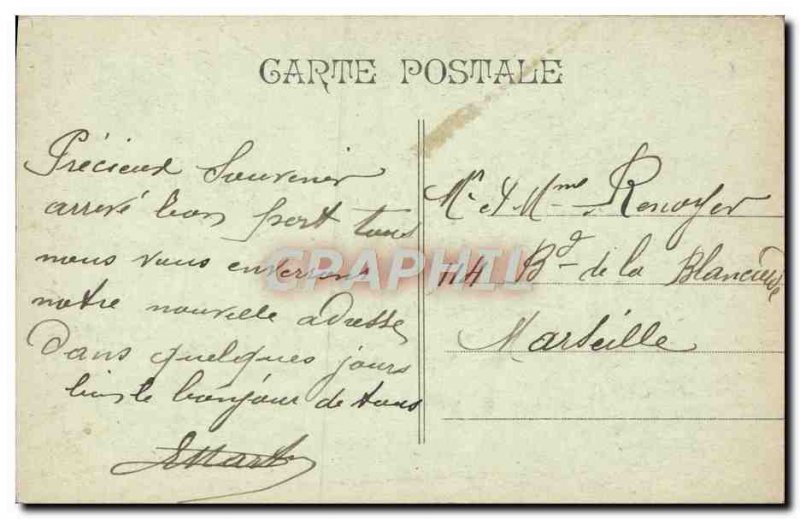 CARTE POSTALE
Précieux Souvenir
arrivé bon port tous
nous vous enverrons
notre nouvelle adresse
dans quelques jours
le bonjour de tous
Mr & Mme Renoyer
114 Bd de la Blancarde
Marseille
CRAPHIL